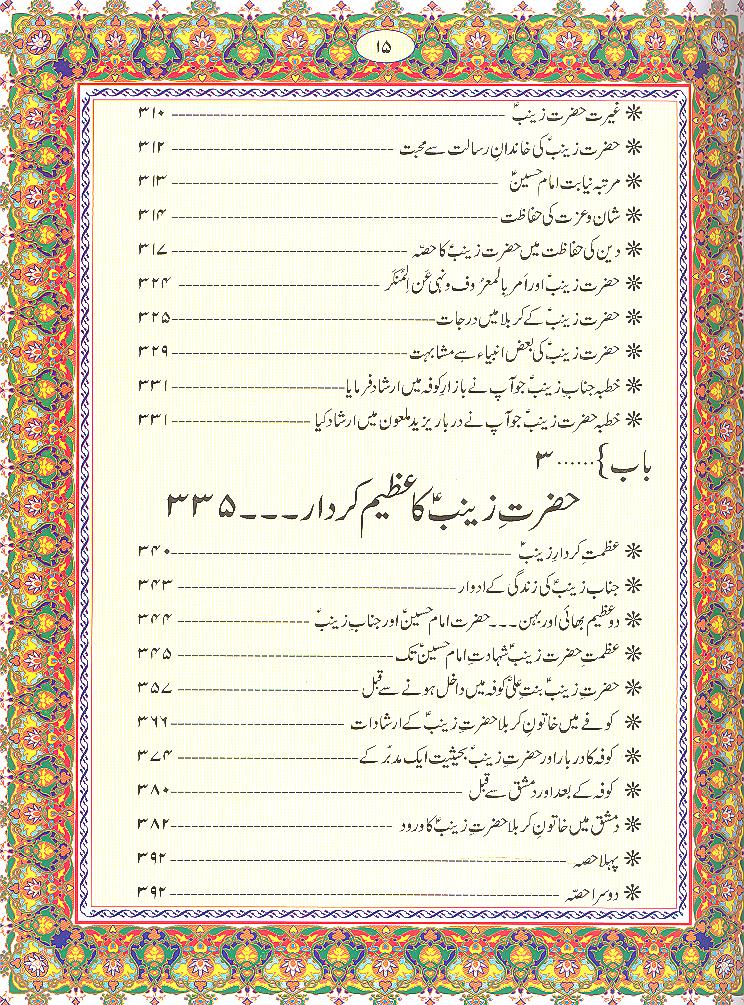 ۱۵
✻ غیرت حضرت زینبؑ ---------- ۳۱۰
✻ حضرت زینبؑ کی خاندانِ رسالت سے محبت ---------- ۳۱۲
✻ مرتبہ نیابت امام حسینؑ ---------- ۳۱۳
✻ شان و عزت کی حفاظت ---------- ۳۱۴
✻ دین کی حفاظت میں حضرت زینبؑ کا حصّہ ---------- ۳۱۷
✻ حضرت زینبؑ اور اَمر بِالمعرُوف و نہی عَنِ المُنکَر ---------- ۳۲۴
✻ حضرت زینبؑ کے کربلا میں درجات ---------- ۳۲۵
✻ حضرت زینبؑ کی بعض انبیاء سے مشابہت ---------- ۳۲۹
✻ خطبہ جناب زینبؑ جو آپ نے بازارِ کوفہ میں ارشاد فرمایا ---------- ۳۳۱
✻ خطبہ حضرت زینبؑ جو آپ نے دربارِ یزید ملعون میں ارشاد کیا ---------- ۳۳۱
باب { ...... ۳
حضرتِ زینبؑ کا عظیم کردار ۔۔۔ ۳۳۵
✻ عظمتِ کردارِ زینبؑ ---------- ۳۴۰
✻ جناب زینبؑ کی زندگی کے ادوار ---------- ۳۴۳
✻ دو عظیم بھائی اور بہن ۔۔۔ حضرت امام حسینؑ اور جنابِ زینبؑ ---------- ۳۴۴
✻ عظمتِ حضرت زینبؑ شہادتِ امام حسینؑ تک ---------- ۳۴۵
✻ حضرت زینبؑ بنتِ علیؑ کوفہ میں داخل ہونے سے قبل ---------- ۳۵۷
✻ کوفے میں خاتونِ کربلا حضرتِ زینبؑ کے ارشادات ---------- ۳۶۶
✻ کوفہ کا دربار اور حضرتِ زینبؑ بحیثیت ایک مدبّر کے ---------- ۳۷۴
✻ کوفہ کے بعد اور دمشق سے قبل ---------- ۳۸۰
✻ دمشق میں خاتونِ کربلا حضرتِ زینبؑ کا ورود ---------- ۳۸۲
✻ پہلا حصہ ---------- ۳۹۲
✻ دوسرا حصّہ ---------- ۳۹۲